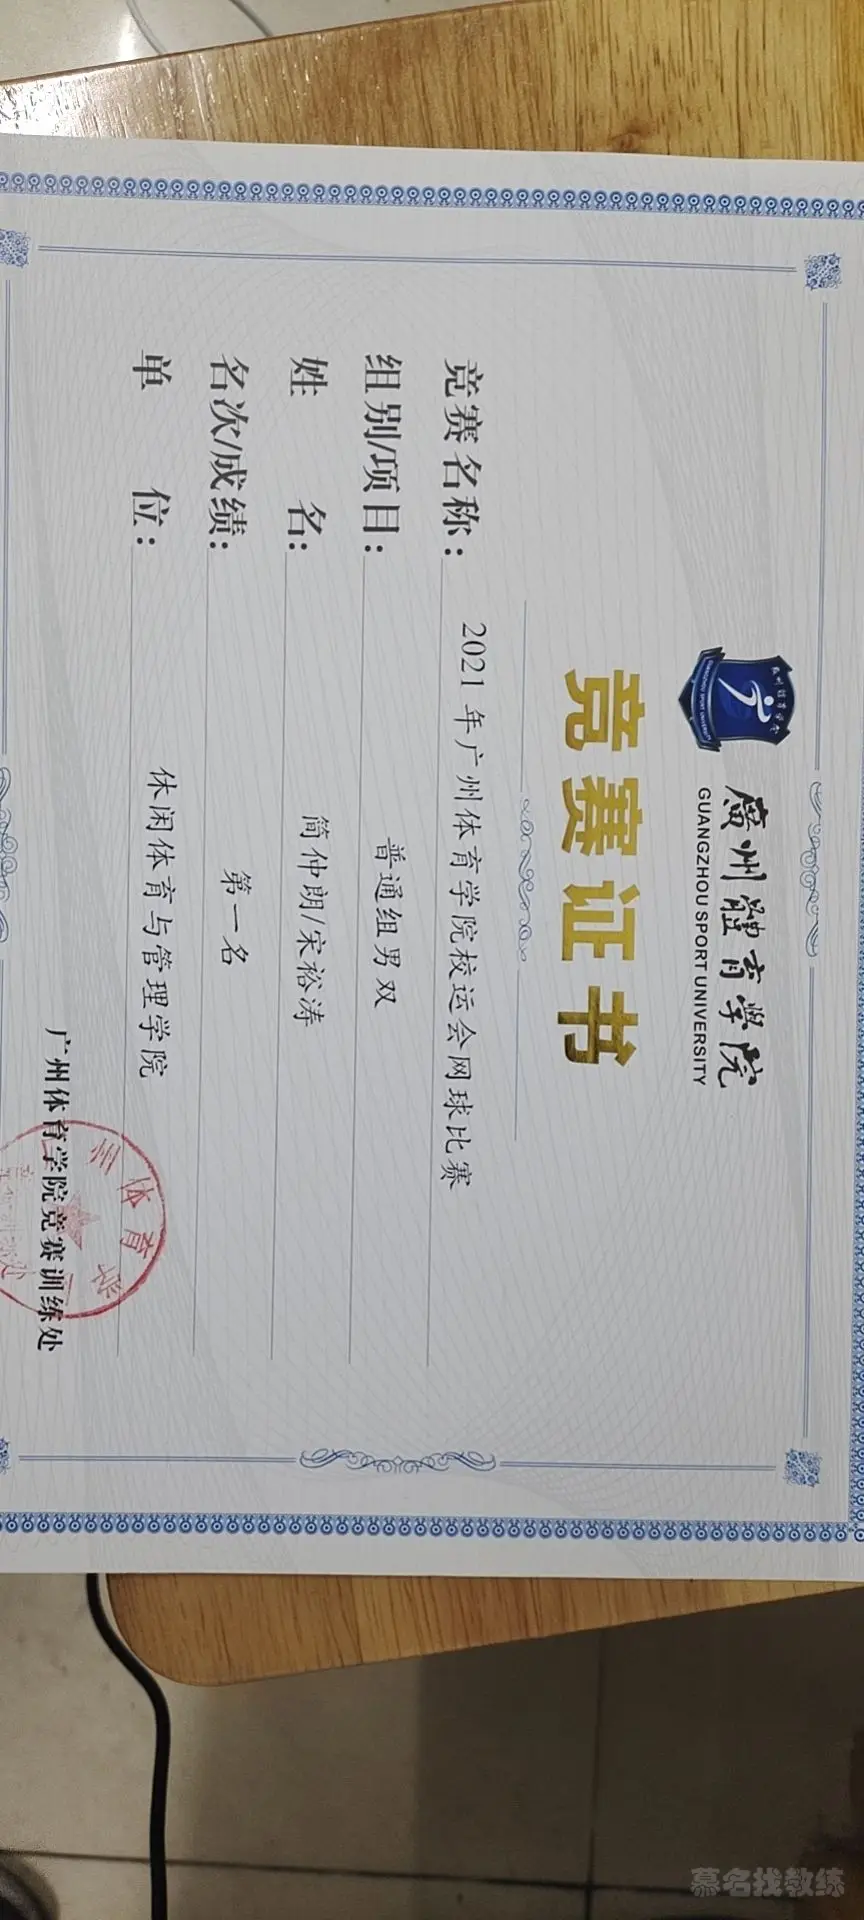 廣州體育學院
GUANGZHOU SPORT UNIVERSITY
竞赛证书
竞赛名称：2021年广州体育学院校运会网球比赛
组别/项目：普通组男双
姓 名：简仲朗/宋裕涛
名次/成绩：第一名
单 位：休闲体育与管理学院
广州体育学院竞赛训练处
州体育学
慕名找教练